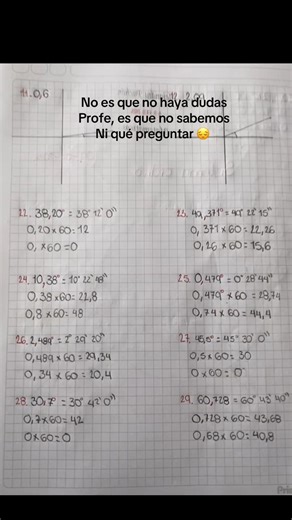 11. 0,6
12. 2,00
No es que no haya dudas
Profe, es que no sabemos
Ni qué preguntar 😔
22. 38,20° = 38° 12' 0"
0,20 x 60 = 12
0, x 60 = 0
23. 49,371° = 49° 22' 15"
0,371 x 60 = 22,26
0,26 x 60 = 15,6
24. 10,38° = 10° 22' 48"
0,38 x 60 = 22,8
0,8 x 60 = 48
25. 0,479° = 0° 28' 44"
0,479° x 60 = 28,74
0,74 x 60 = 44,4
26. 2,489° = 2° 29' 20"
0,489 x 60 = 29,34
0,34 x 60 = 20,4
27. 45,5° = 45° 30' 0"
0,5 x 60 = 30
0 x 60 = 0
28. 30,7° = 30° 42' 0"
0,7 x 60 = 42
0 x 60 = 0
29. 60,728 = 60° 43' 40"
0,728 x 60 = 43,68
0,68 x 60 = 40,8